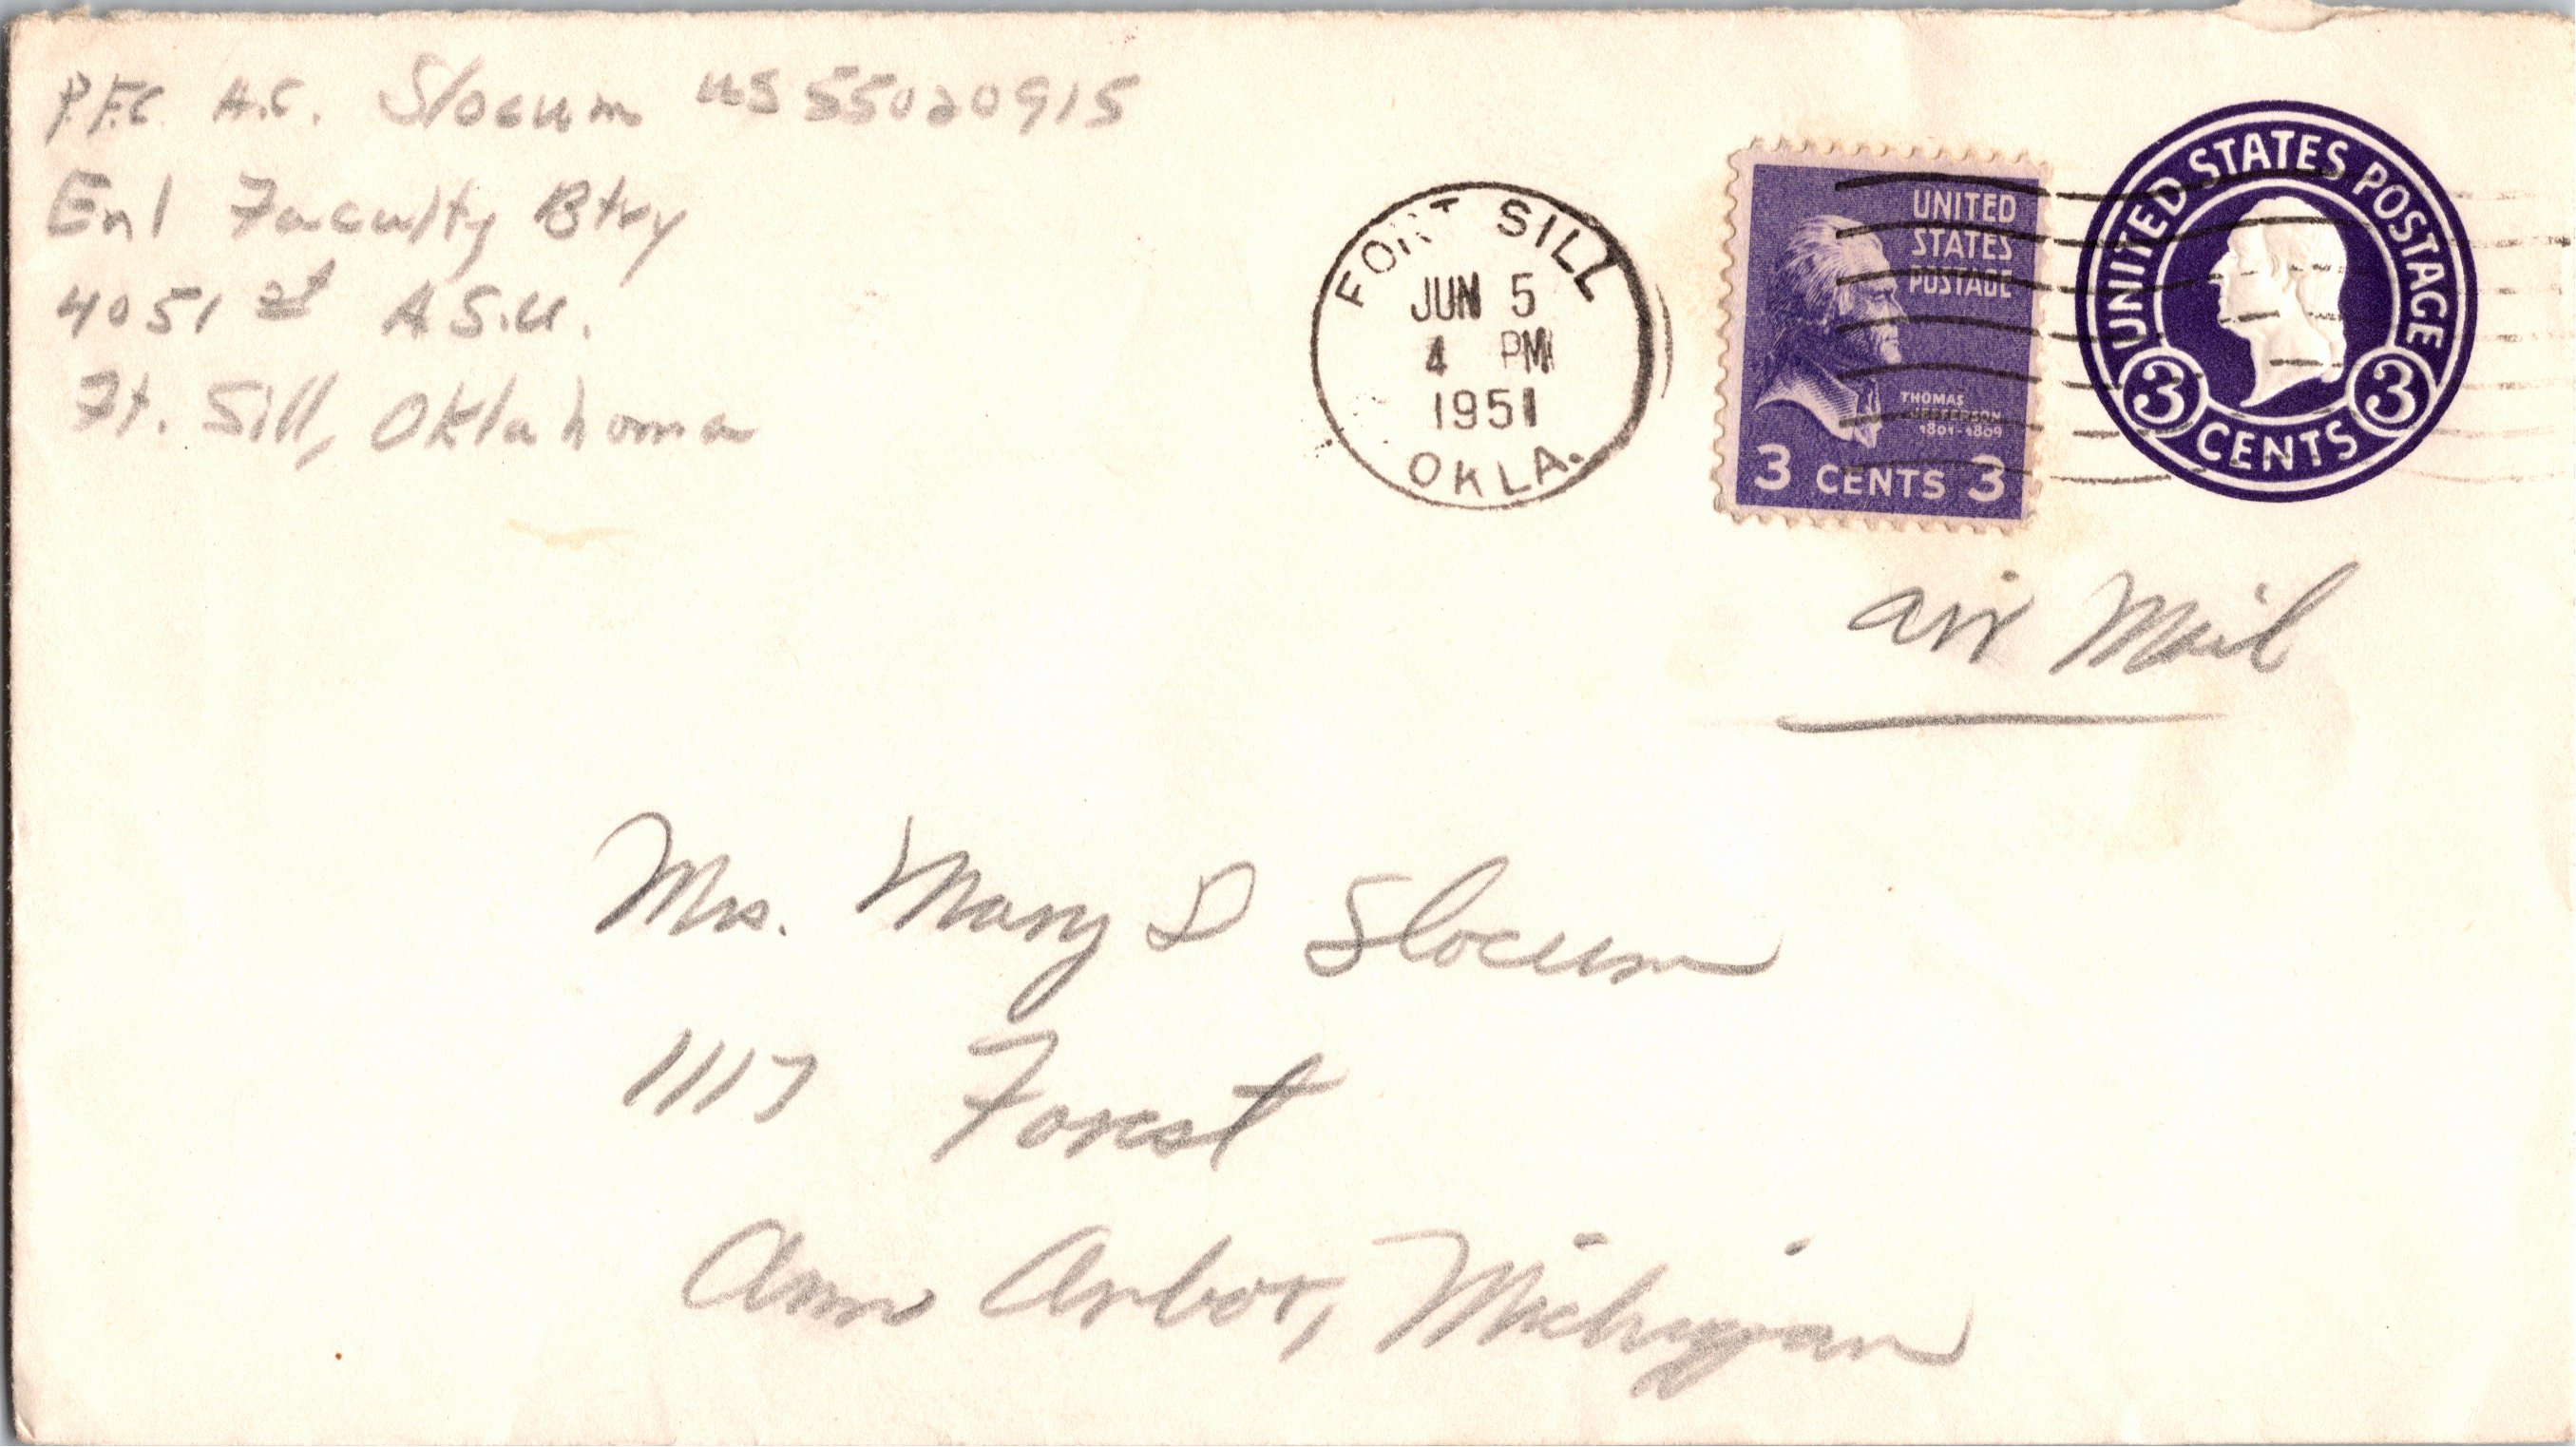 P.F.C. A.C. Slocum US 55020915
Enl Faculty Btry
4051 st A.S.U.
Ft. Sill, Oklahoma
FORT SILL
JUN 5
4 PM
1951
OKLA.
UNITED
STATES
POSTAGE
THOMAS
JEFFERSON
1801-1809
3 CENTS 3
UNITED STATES POSTAGE
3 CENTS 3
Air Mail
Mrs. Mary D Slocum
1117 Forest
Ann Arbor, Michigan